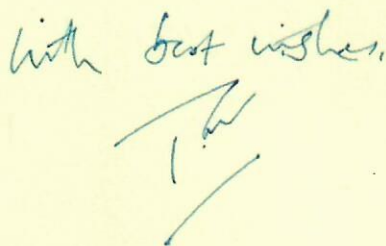 with best wishes,